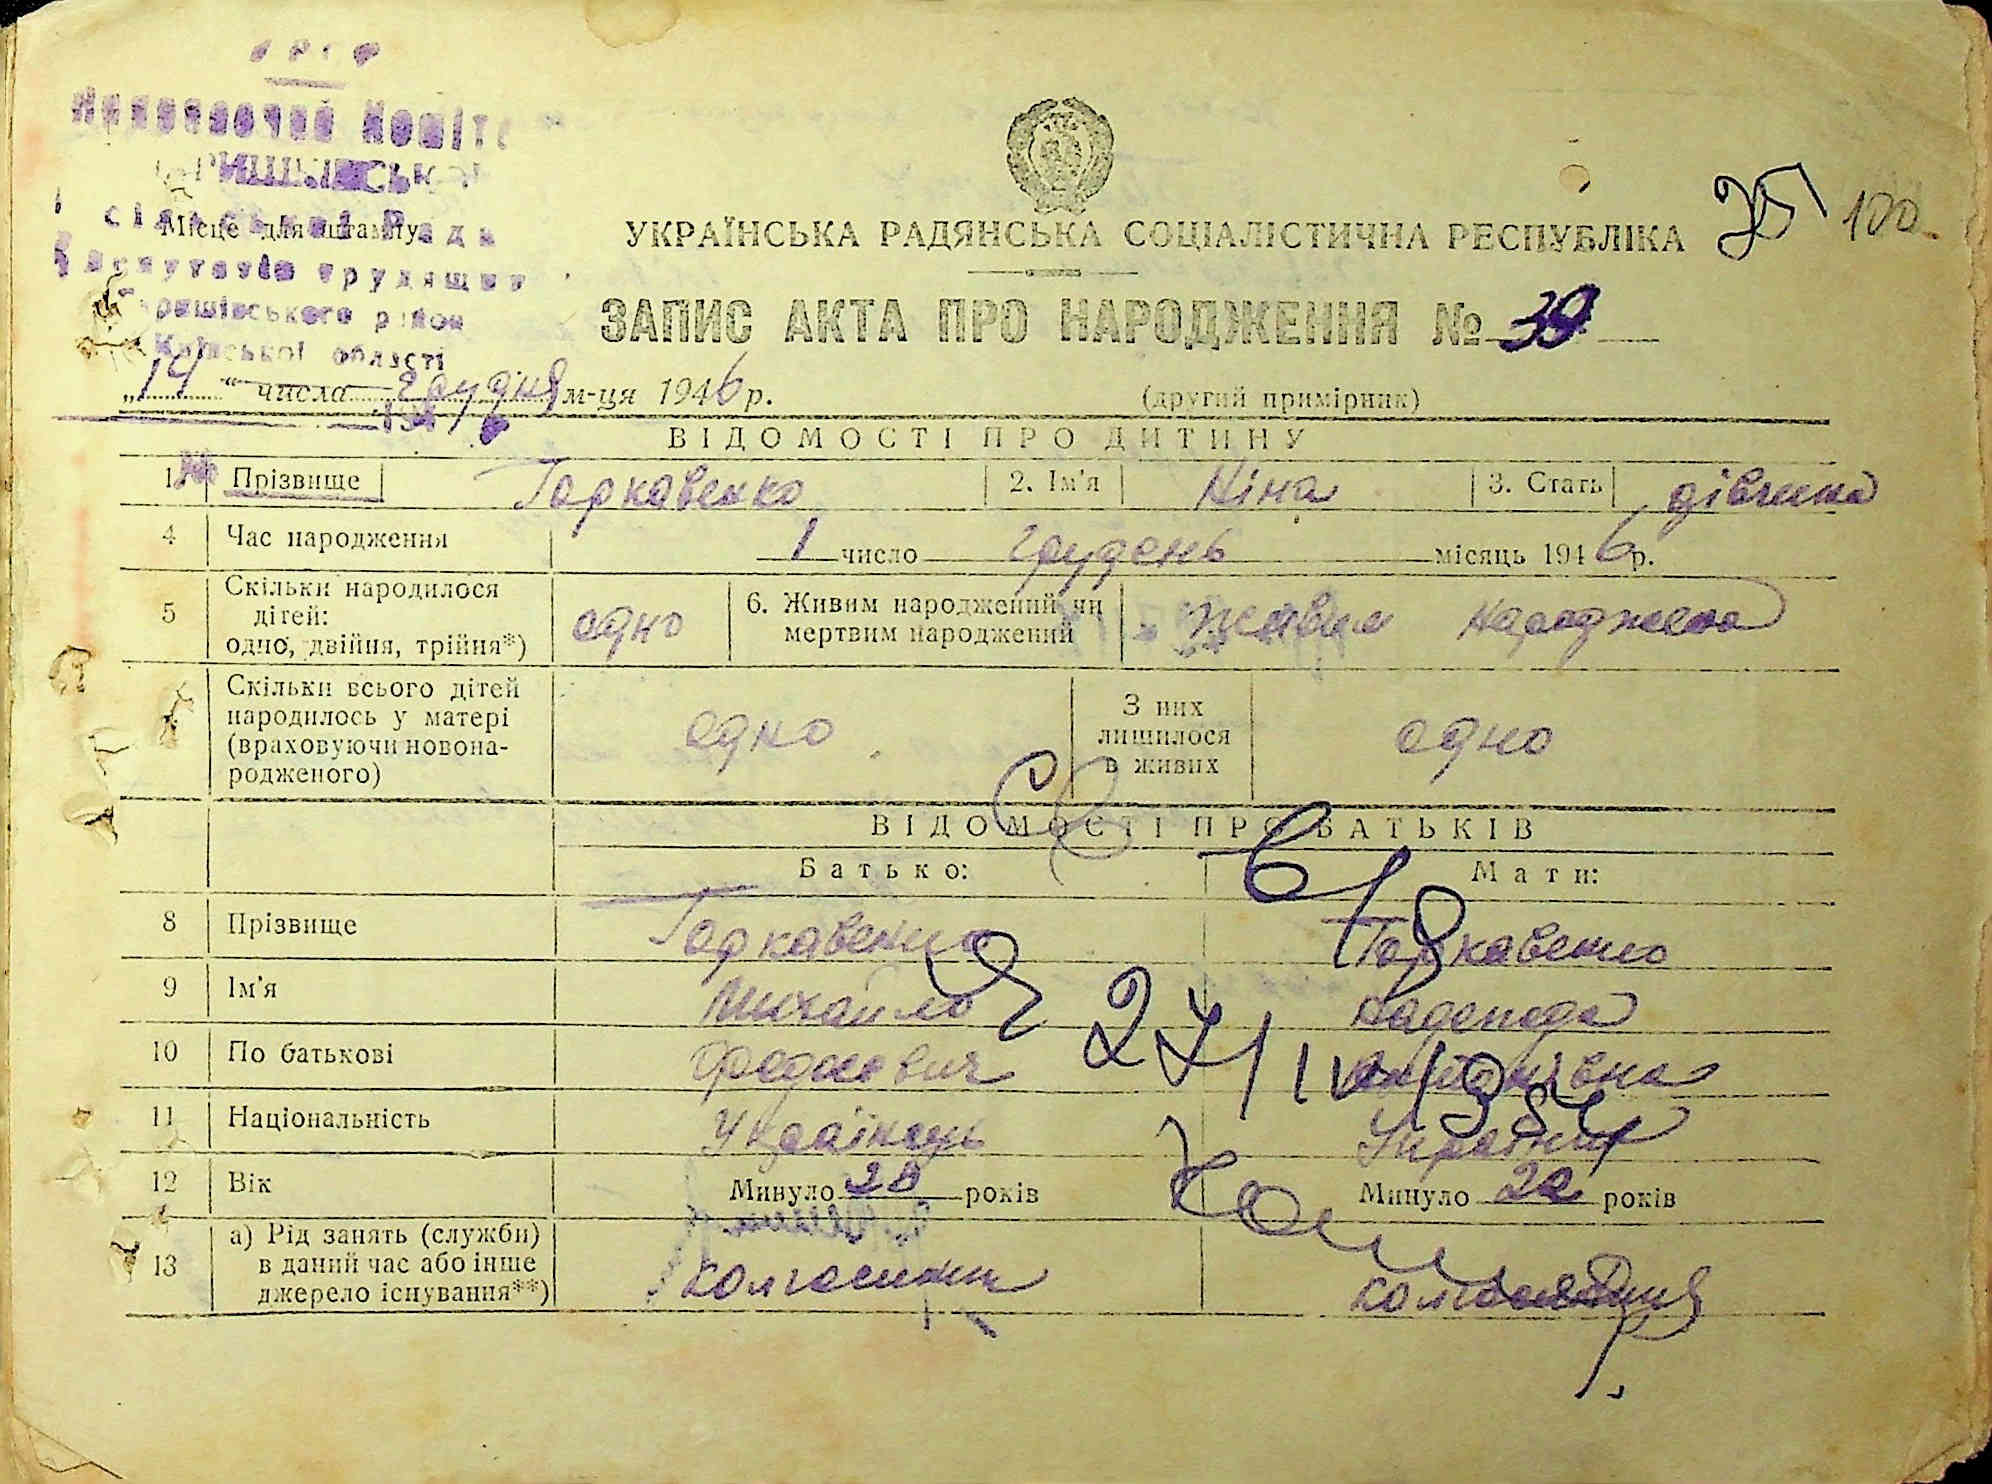 УРСР
Виконавчий Коміте
сільської Ради
Місце для штампу
депутатів трудящих
району
Київської області
УКРАЇНСЬКА РАДЯНСЬКА СОЦІАЛІСТИЧНА РЕСПУБЛІКА
100
ЗАПИС АКТА ПРО НАРОДЖЕННЯ № 39
„14“ числа грудня м-ця 1946 р.
(другий примірник)
ВІДОМОСТІ ПРО ДИТИНУ
1 Прізвище Гаркавенко 2. Ім'я Ніна 3. Стать дівчина
4 Час народження 1 число грудень місяць 1946 р.
5 Скільки народилося дітей: одно, двійня, трійня*) одно 6. Живим народжений чи мертвим народжений живим народжена
Скільки всього дітей народилось у матері (враховуючи новонародженого) одно З них лишилося в живих одно
ВІДОМОСТІ ПРО БАТЬКІВ
Батько: Мати:
8 Прізвище Гаркавенко Гаркавенко
9 Ім'я Михайло Надежда
10 По батькові
11 Національність Українець
12 Вік Минуло 28 років Минуло 22 років
13 а) Рід занять (служби) в даний час або інше джерело існування**) колгоспник